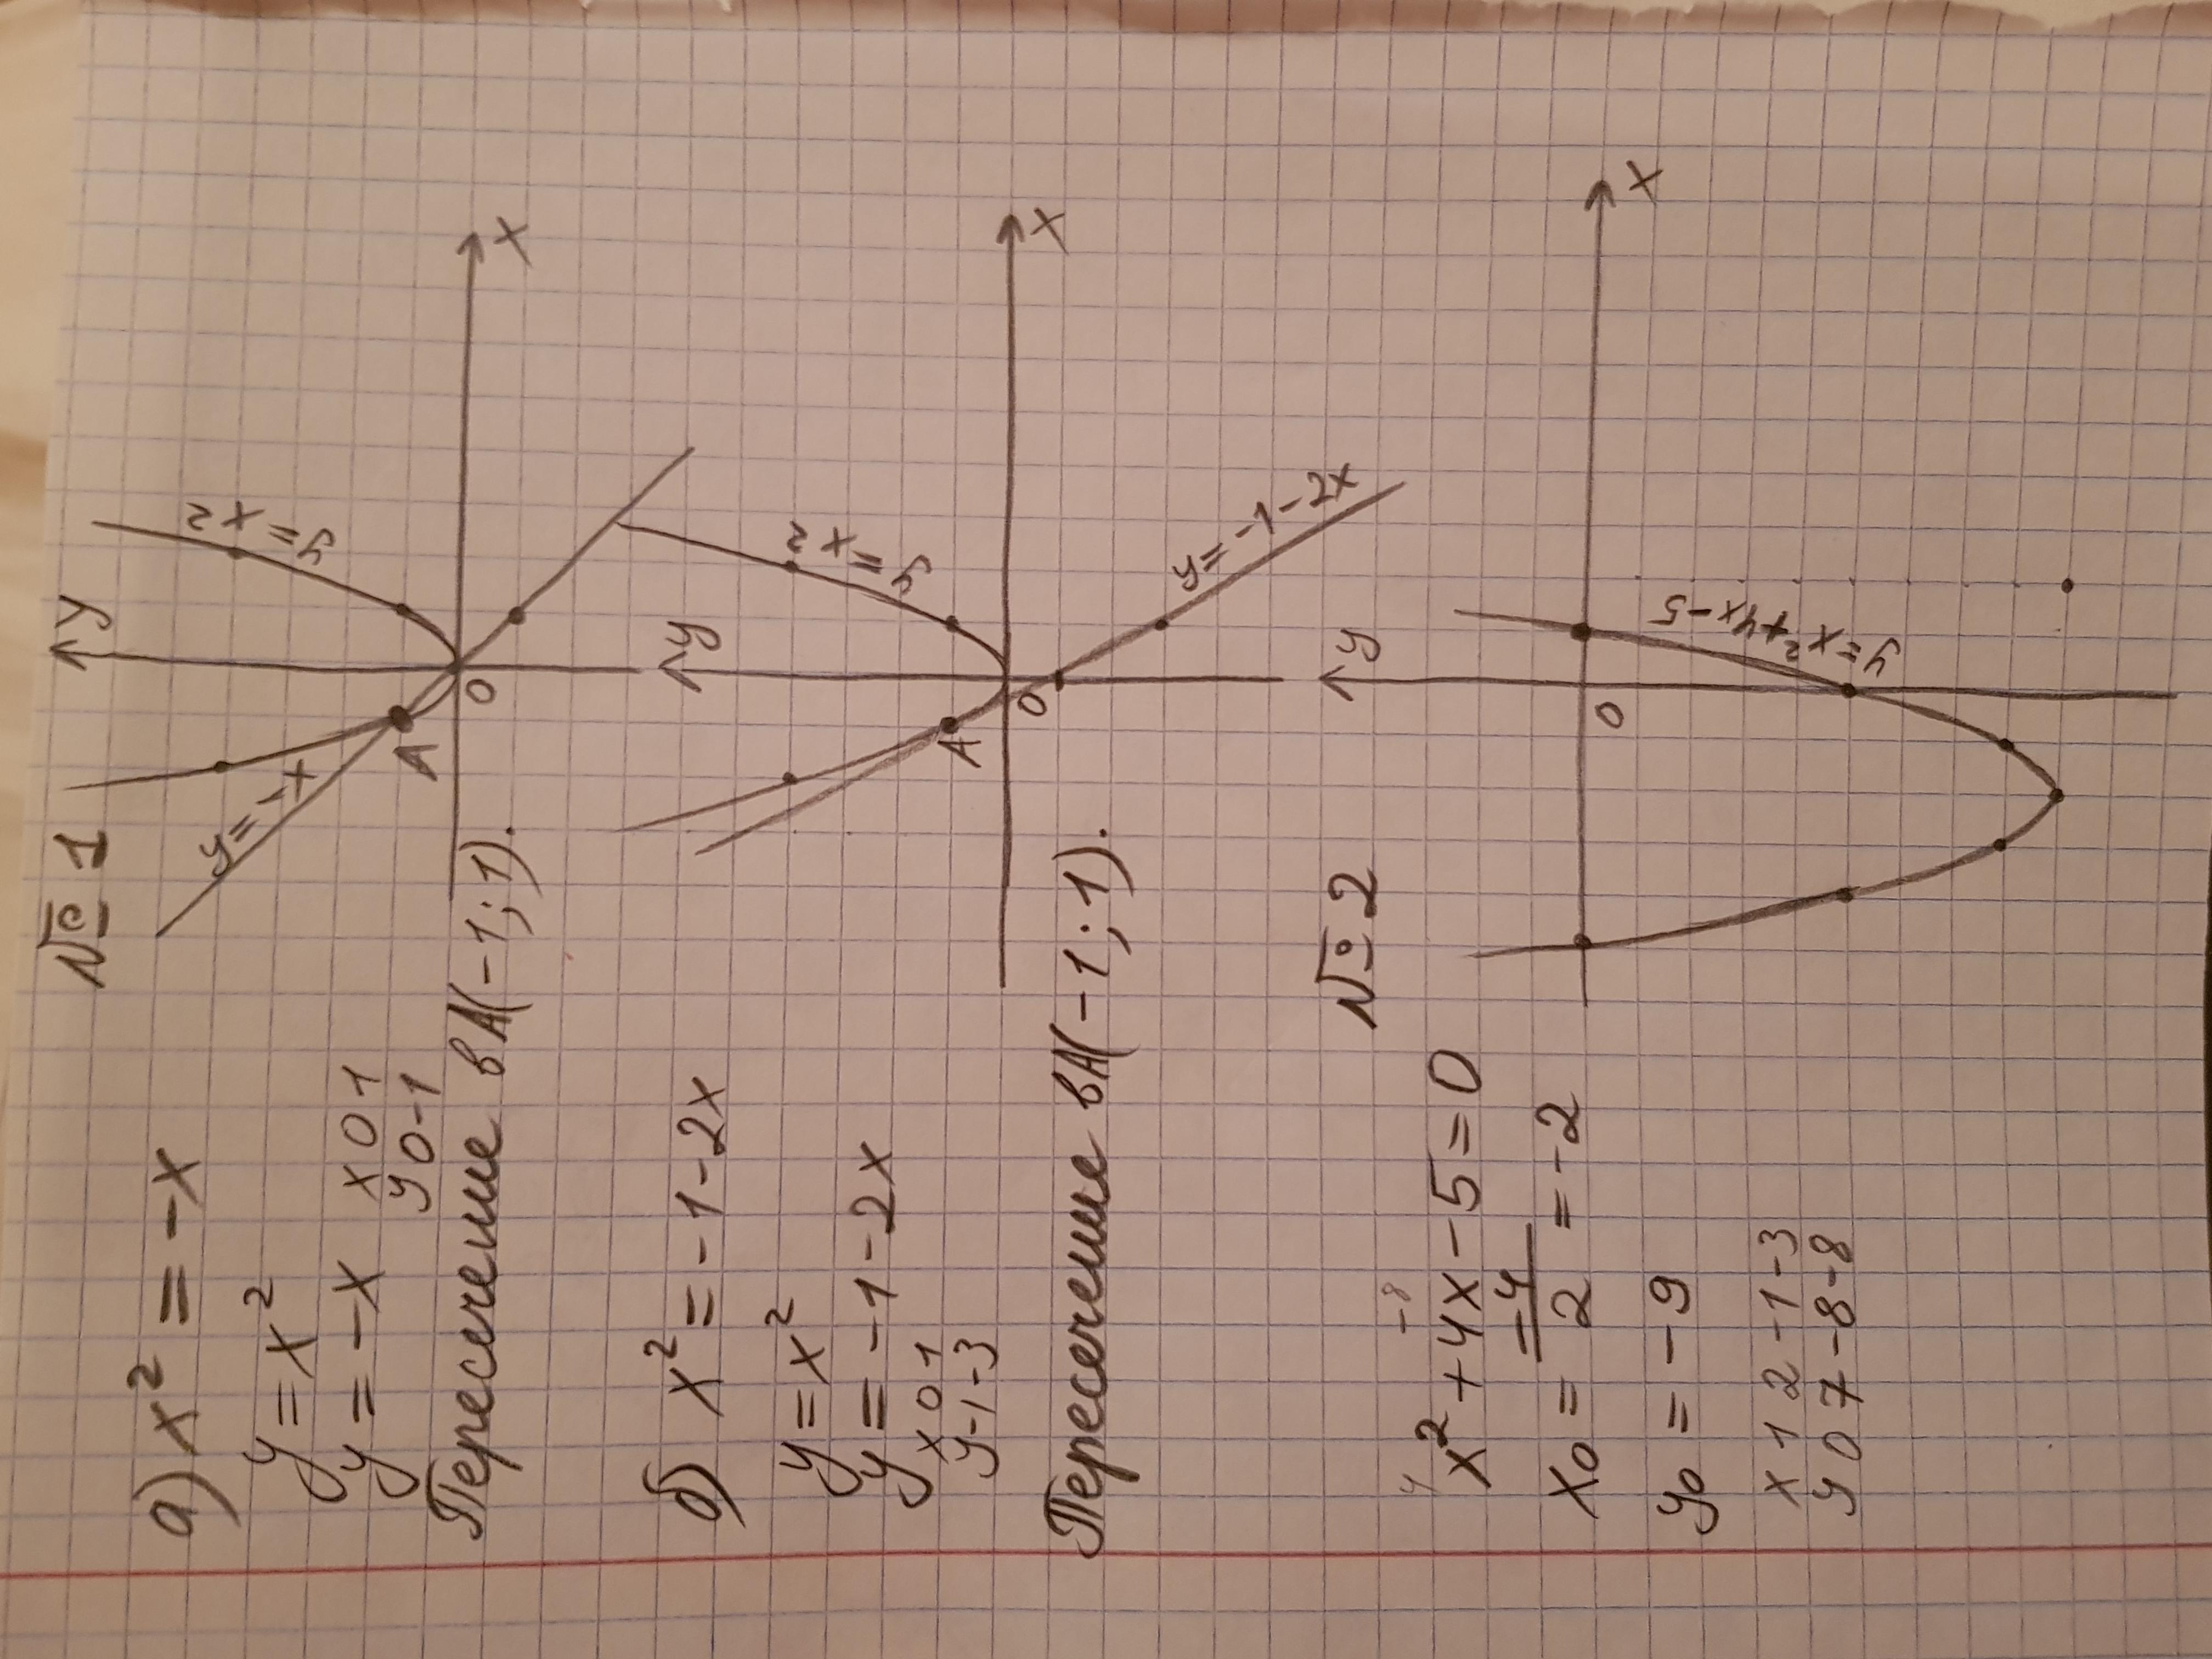 № 1
а) x² = -x
y = x²
y = -x
x 0 1
y 0 -1
Пересечение в A(-1; 1).
y
x
0
A
y = -x
y = x²
б) x² = -1 - 2x
y = x²
y = -1 - 2x
x 0 1
y -1 -3
Пересечение в A(-1; 1).
y
x
0
A
y = x²
y = -1 - 2x
№ 2
4 -8
x² + 4x - 5 = 0
x₀ = -4/2 = -2
y₀ = -9
x 1 2 -1 -3
y 0 7 -8 -8
y
x
0
y = x² + 4x - 5